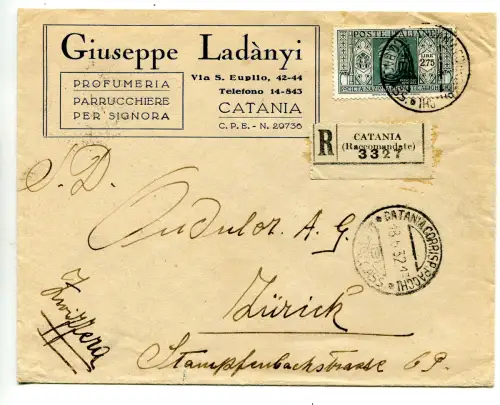 Giuseppe Ladànyi
PROFUMERIA
PARRUCCHIERE
PER SIGNORA
Via S. Euplio, 42-44
Telefono 14-843
CATANIA
C. P. E. - N. 20736
POSTE ITALIANE
LIRE
2,75
R
CATANIA
(Raccomandate)
3327
S. D.
Ondulor A. G.
Zürich
Stampfenbachstrasse 69.
Svizzera
CATANIA CORRISP. PACCHI